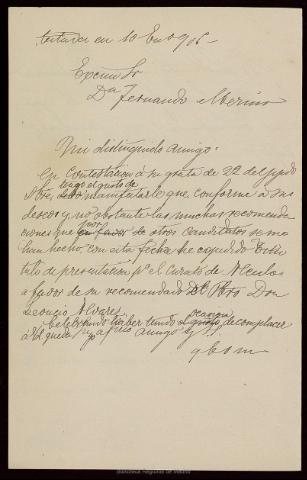 en 10 En.º 906-
Excmo Sr
Dn Fernando Merino
Mi distinguido amigo:
En contestación á su grata de 22 del ppdo
tengo el gusto de
debo manifestarle que, conforme á sus
deseos y no obstante las muchas recomenda
por
ciones que en favor de otros candidatos se me
han hecho, con esta fecha he expedido titu
tulo de presentación pª el Curato de
á favor de su recomendado Dn Pbro Don
Leoncio Alvarez.
Celebrando haber tenido ocasion
el gusto de complacer
á Vd queda suyo afmo amigo y
q b s m
Biblioteca Regional de Madrid